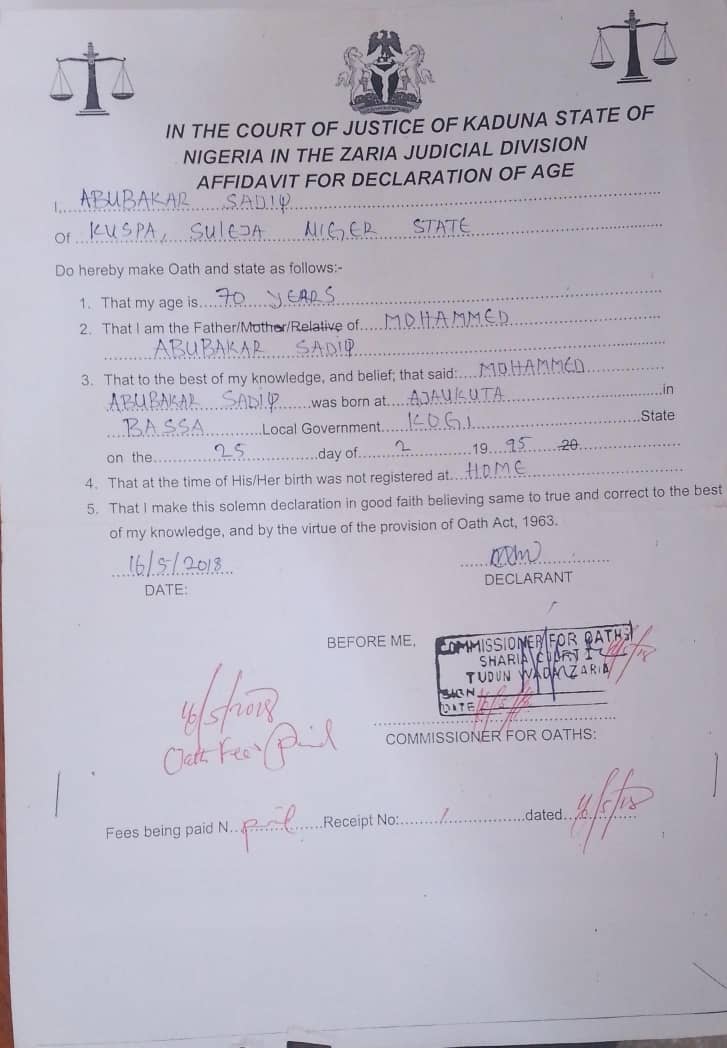 IN THE COURT OF JUSTICE OF KADUNA STATE OF
NIGERIA IN THE ZARIA JUDICIAL DIVISION
AFFIDAVIT FOR DECLARATION OF AGE
I, ABUBAKAR SADIQ
Of KUSPA, SULEJA NIGER STATE
Do hereby make Oath and state as follows:-
1. That my age is 70 YEARS
2. That I am the Father/Mother/Relative of MOHAMMED
ABUBAKAR SADIQ
3. That to the best of my knowledge, and belief; that said: MOHAMMED
ABUBAKAR SADIQ was born at AJAUKUTA in
BASSA Local Government KOGI State
on the 25 day of 2 19 95 20
4. That at the time of His/Her birth was not registered at HOME
5. That I make this solemn declaration in good faith believing same to true and correct to the best
of my knowledge, and by the virtue of the provision of Oath Act, 1963.
16/5/2018
DATE:
DECLARANT
BEFORE ME,
COMMISSIONER FOR OATHS
SHARIA COURT
TUDUN WADA ZARIA
SIGN
DATE 16/5/18
COMMISSIONER FOR OATHS:
16/5/2018
Oath Fees paid
Fees being paid N paid Receipt No: dated 16/5/18